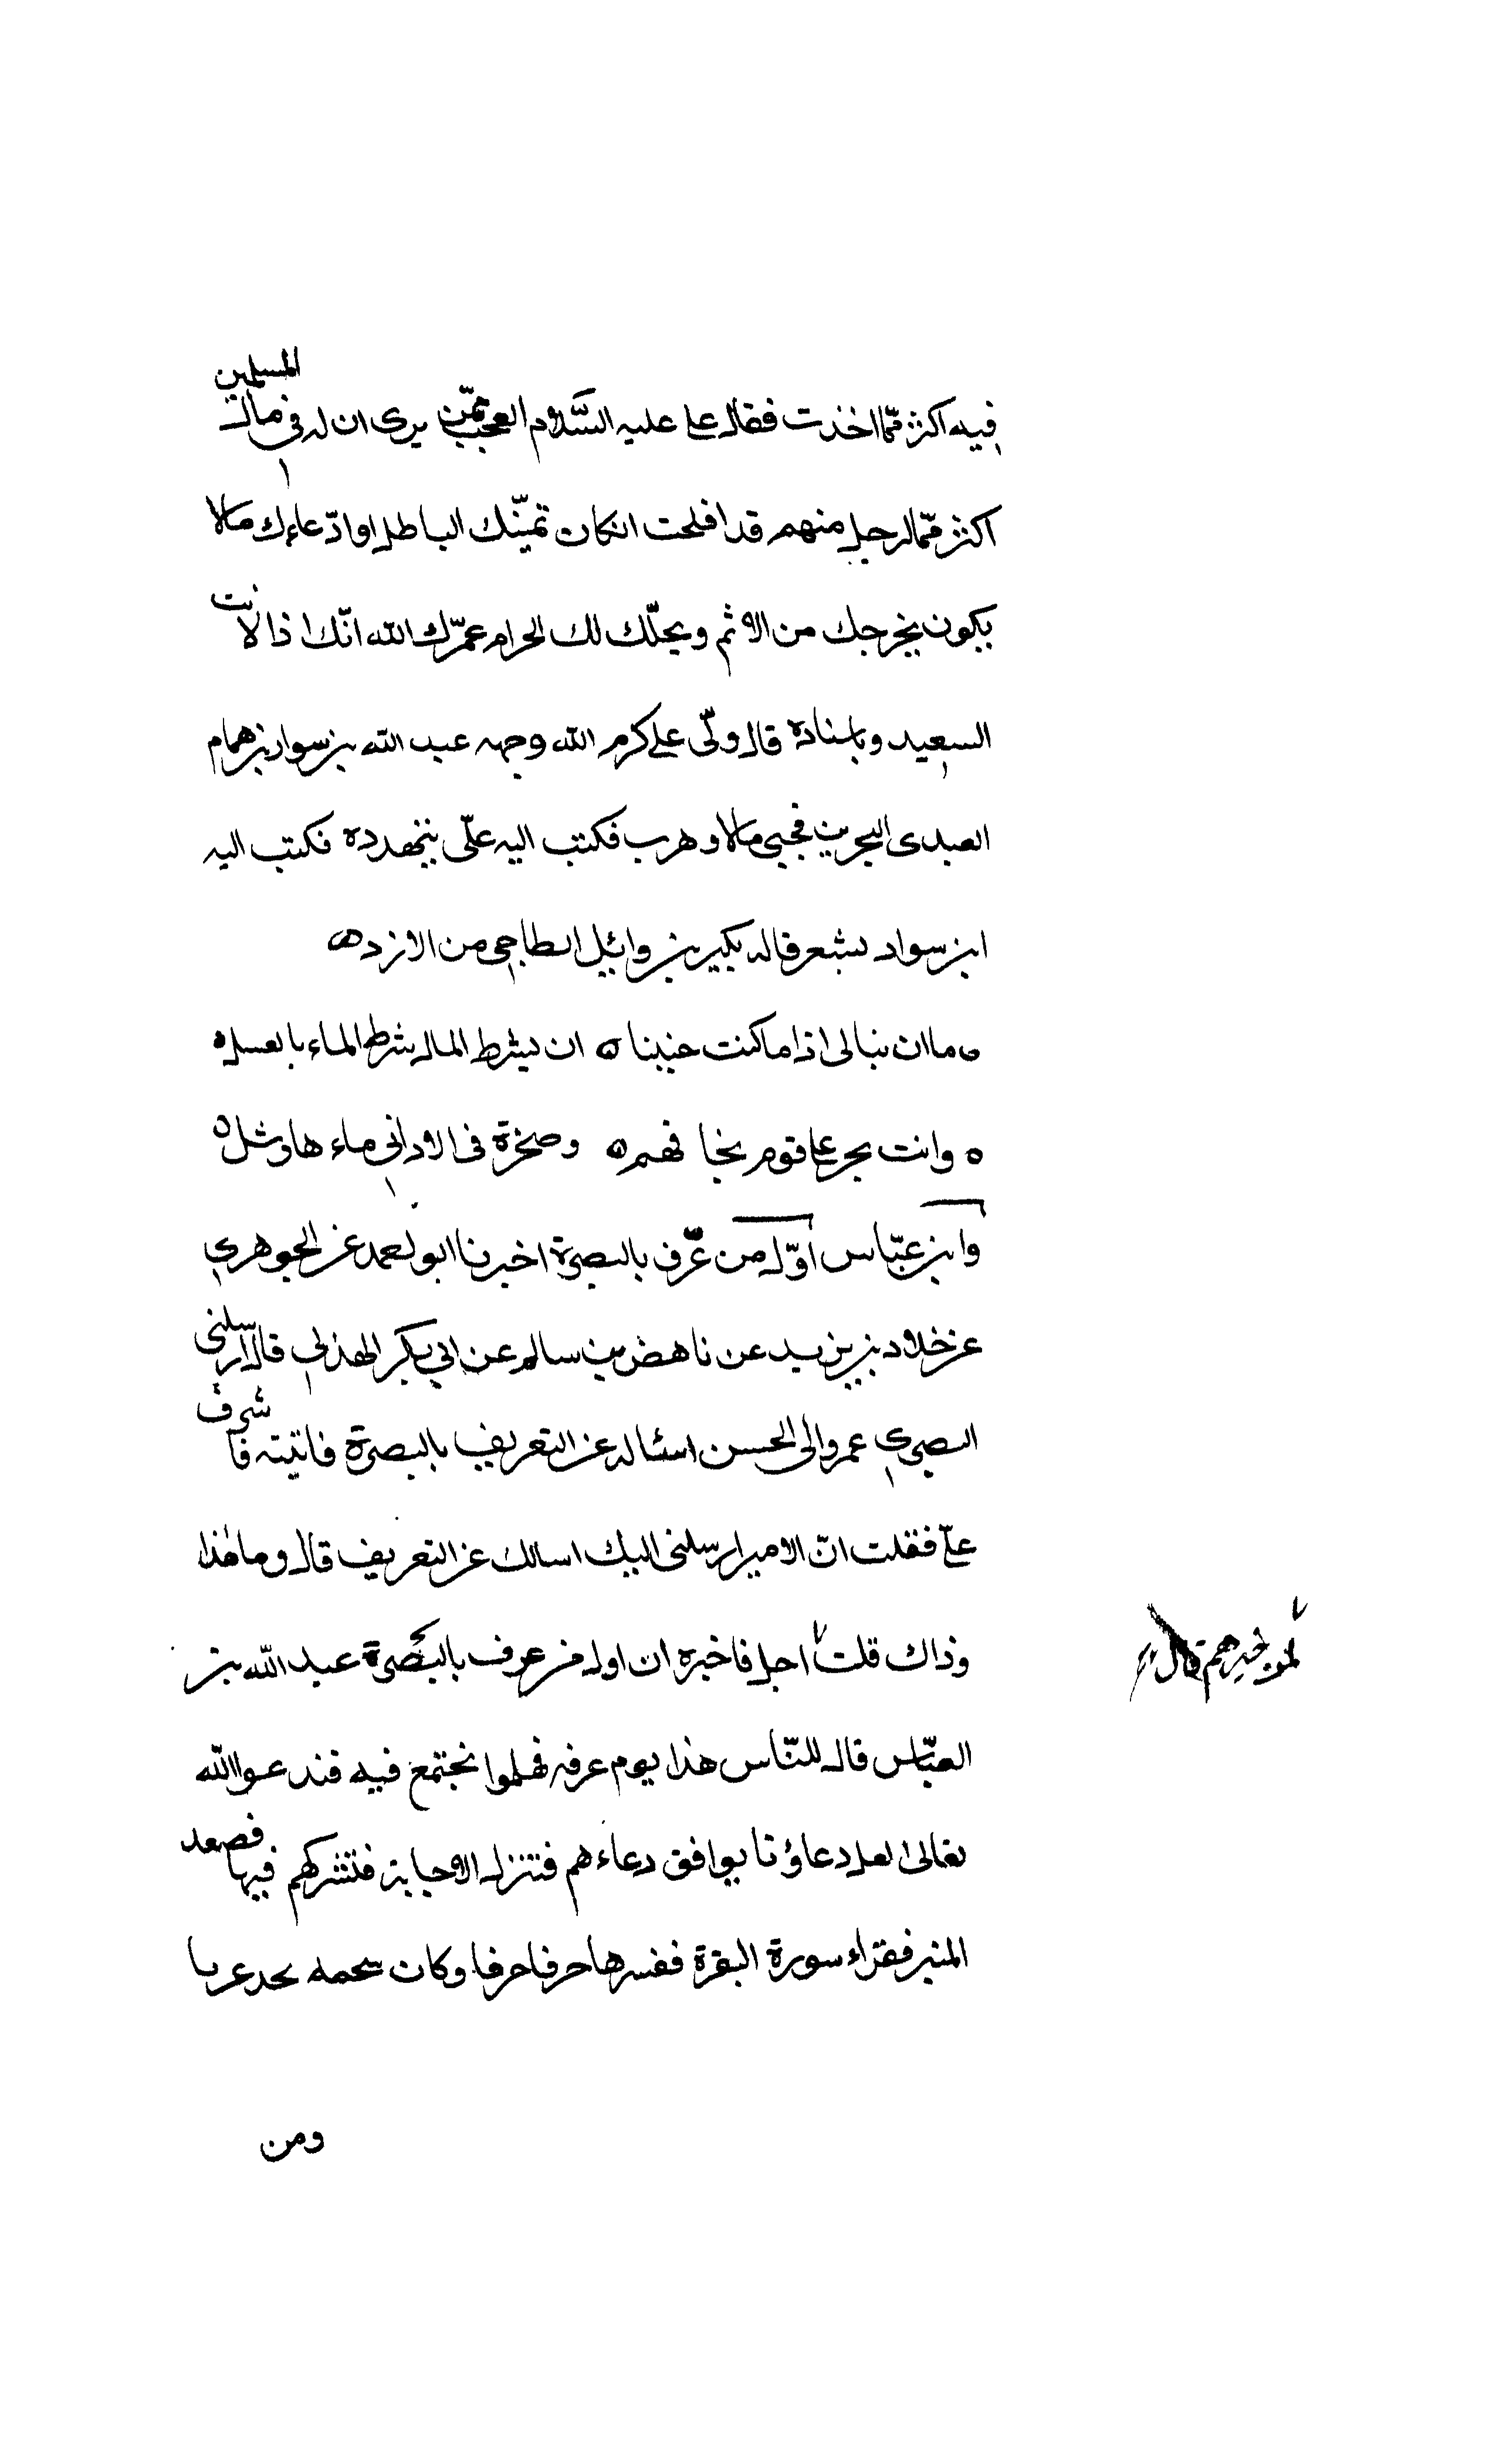 فيه اكثر مما اخذت فقال على عليه السّلام العجب ممّن يرى ان له فى مال المسلمين
اكثر ممّا لرجل منهم قد افلحت ان كان تمنّيك الباطل او ادّعاءك مالا
يكون يخرجك من الاثم ويحلّك لك الحرام عمّرك الله انّك اذا لانت
السعيد وباسناده قال ولّى على كرم الله وجهه عبد الله بن سوار بن همام
العبدى البحرين فجبى مالا وهرب فكتب اليه علىّ يتهدده فكتب اليه
ابن سواد بشعر قاله بكير بن وائيل الطاحى من الازد
ما ان نبالى اذا ما كنت حنبنا ان يشرط المال شرط الماء بالعسل
وانت بحر على قوم تخافهم وصخرة فى الادانى ماءها وشل
وابن عبّاس اوّل من عرّف بالبصرة اخبرنا ابو احمد عن الجوهرى
عن خلاد بن يزيد عن ناهض بن سالم عن ابى بكر الهذلى قال ارسلنى
عمر والى الحسن اسئاله عن التعريف بالبصرة فاتيته فاشرف
علىّ فقلت انّ الامير ارسلنى اليك اسالك عن التعريف قال وما هذا
وذاك قلت اجل فاخبره ان اول من عرف بالبصرة عبد الله بن
العبّاس قال للنّاس هذا يوم عرفه فهلموا نجتمع فيه فندعوا الله
تعالى لعل دعاؤنا يوافق دعاءهم فتنزل الاجابة فتشركهم فيها فصعد
المنبر فقراء سورة البقرة ففسرها حرفا حرفا وكان
ومن